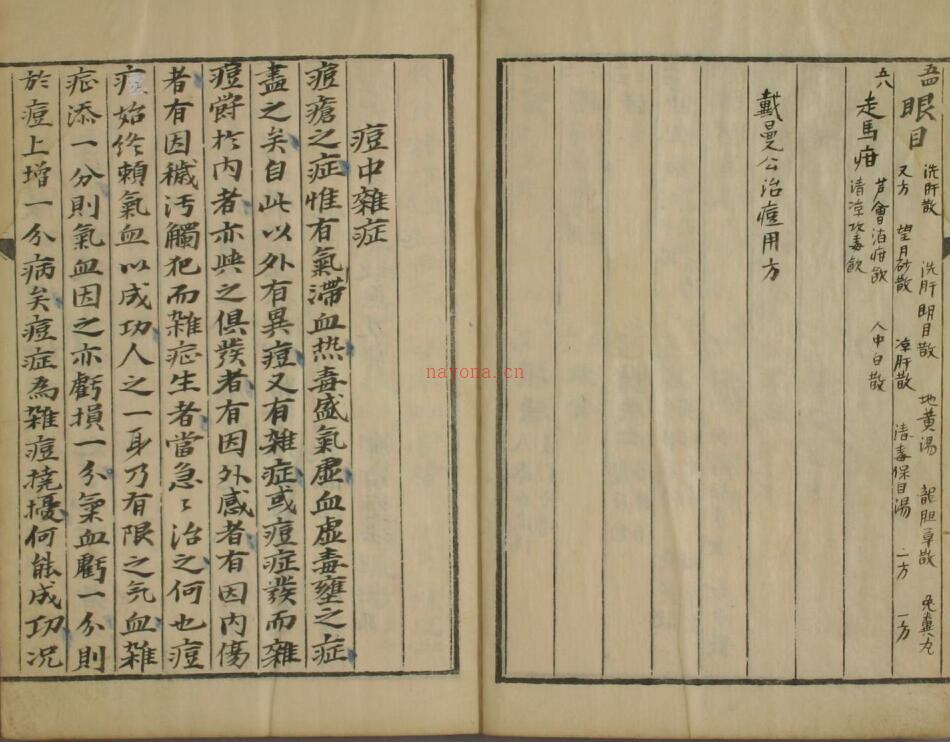 五四 眼目 洗肝散 洗肝明目散 地黄湯 龍胆草散 兔糞丸
又方 望月砂散 凉肝散 清毒保目湯 二方 一方
五八 走馬疳 芦會消疳飲 人中白散
清凉攻毒飲
戴曼公治痘用方
痘中雜症
痘瘡之症惟有氣滯血热毒盛氣虛血虛毒壅之症
盡之矣自此以外有異痘又有雜症或痘症發而雜
痘欝於内者亦與之俱發者有因外感者有因内傷
者有因穢汚觸犯而雜症生者當急〻治之何也痘
痘始终頼氣血以成功人之一身乃有限之気血雜
症添一分則氣血因之亦虧損一分氣血虧一分則
於痘上增一分病矣痘症為雜痘撓擾何能成功况
nayona.cn